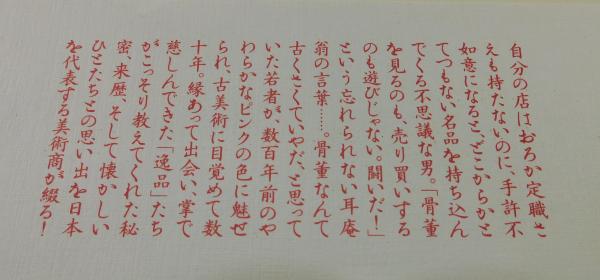 自分の店はおろか定職さ
えも持たないのに、手許不
如意になると、どこからかと
てつもない名品を持ち込ん
でくる不思議な男。「骨董
を見るのも、売り買いする
のも遊びじゃない。闘いだ！」
という忘れられない耳庵
翁の言葉……。骨董なんて
古くさくていやだ、と思って
いた若者が、数百年前のや
わらかなピンクの色に魅せ
られ、古美術に目覚めて数
十年。縁あって出会い、掌で
慈しんできた「逸品」たち
がこっそり教えてくれた秘
密、来歴、そして懐かしい
ひとたちとの思い出を日本
を代表する美術商が綴る！